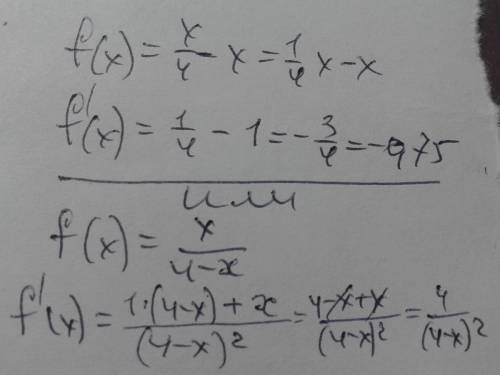 f(x) = x/4 - x = 1/4 x - x
f'(x) = 1/4 - 1 = -3/4 = -0,75
или
f(x) = x/(4-x)
f'(x) = (1·(4-x)+x)/(4-x)² = (4-x+x)/(4-x)² = 4/(4-x)²